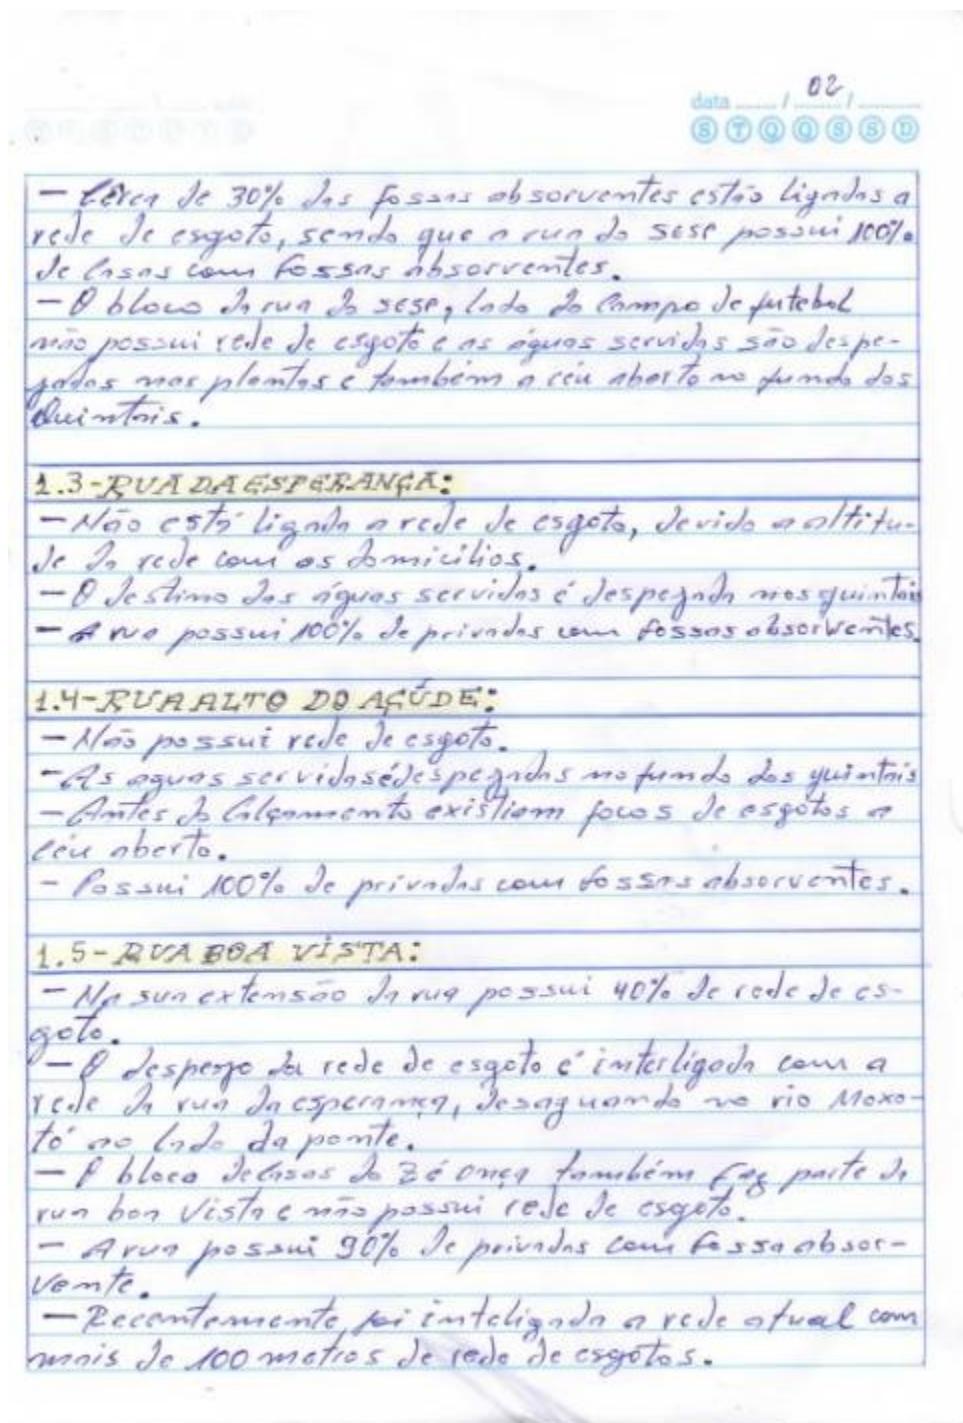 02
data ...... / ...... / ......
S T Q Q S S D
- Cerca de 30% das fossas absorventes estão ligadas a
rede de esgoto, sendo que a rua do sese possui 100%
de casas com fossas absorventes.
- O bloco da rua do sese, lado do campo de futebol
não possui rede de esgoto e as águas servidas são despe-
jadas nas plantas e também a céu aberto no fundo dos
Quintais.
1.3-RUA DA ESPERANÇA:
- Não está ligada a rede de esgoto, devido a altitu-
de da rede com os domicílios.
- O destino das águas servidas é despejada nos quintais
- A rua possui 100% de privadas com fossas absorventes.
1.4-RUA ALTO DO AÇÚDE:
- Não possui rede de esgoto.
- As aguas servidas é despejadas no fundo dos quintais
- Antes do calçamento existiam focos de esgôtos a
céu aberto.
- Possui 100% de privadas com fossas absorventes.
1.5-RUA BOA VISTA:
- Na sua extensão da rua possui 40% de rede de es-
goto.
- O despejo da rede de esgoto é interligada com a
rede da rua da esperança, desaguando no rio Moxo-
tó ao lado da ponte.
- O bloco de casas do Zé onça também faz parte da
rua boa Vista e não possui rede de esgoto.
- A rua possui 90% de privadas com fossa absor-
vente.
- Recentemente foi inteligada a rede atual com
mais de 100 metros de rede de esgotos.